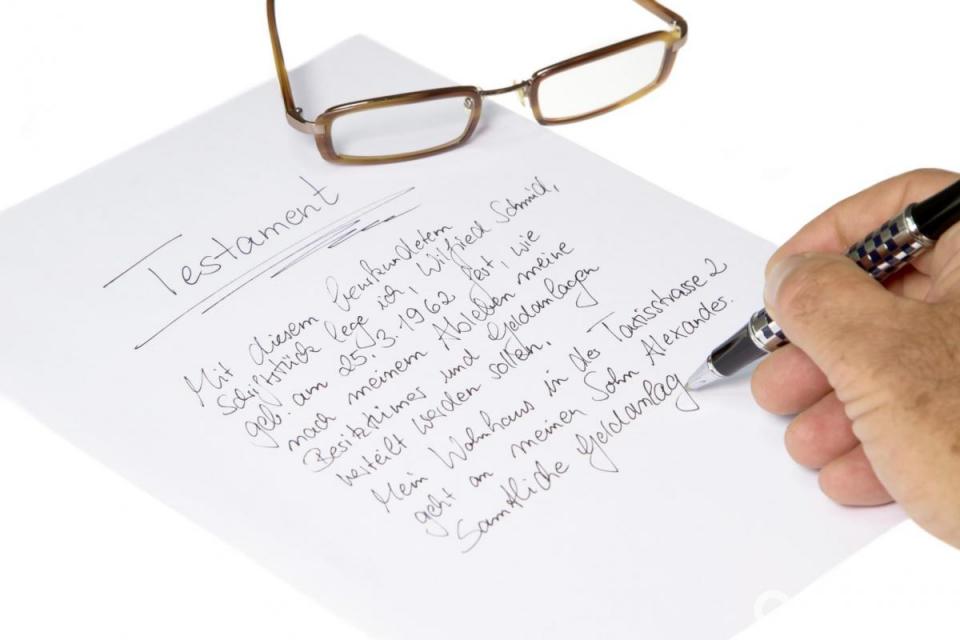 Testament
Mit diesem beurkundetem
Schiftstück lege ich, Wilfried Schmid,
geb. am 25.3.1962 fest, wie
nach meinem Ableben meine
Besitztümer und Geldanlagen
verteilt werden sollen.
Mein Wohnhaus in der Taxisstrasse 2
geht an meinen Sohn Alexander.
Sämtliche Geldanlag